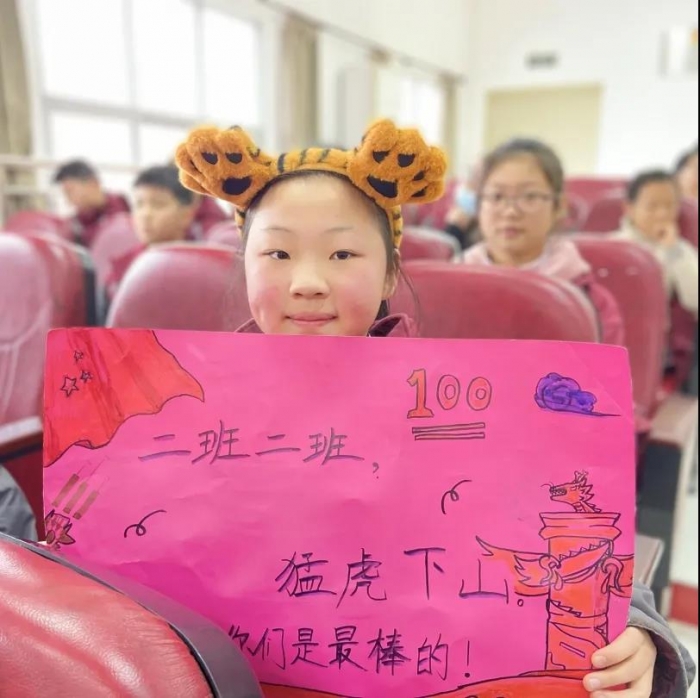 100
二班二班，
猛虎下山。
你们是最棒的！